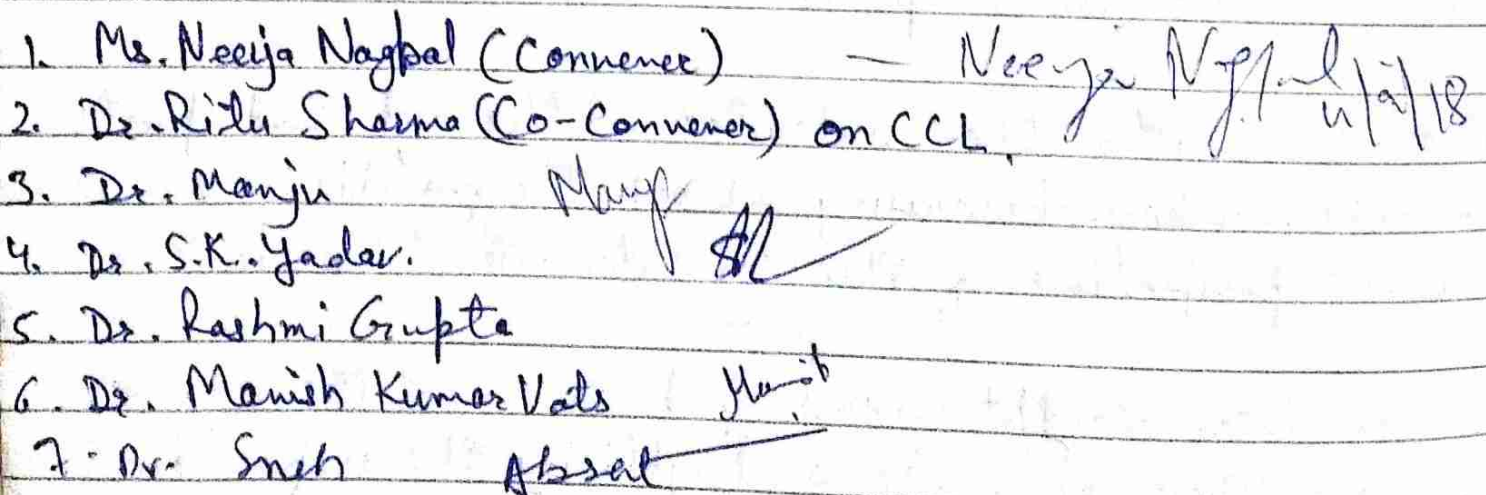 1. Ms. Neerja Nagpal (Convener) — Neerja Nagpal
2. Dr. Ritu Sharma (Co-Convener) on CCL.
3. Dr. Manju Manju
4. Dr. S.K. Yadav.
5. Dr. Rashmi Gupta
6. Dr. Manish Kumar Vats Manish
7. Dr. Sneh Absent